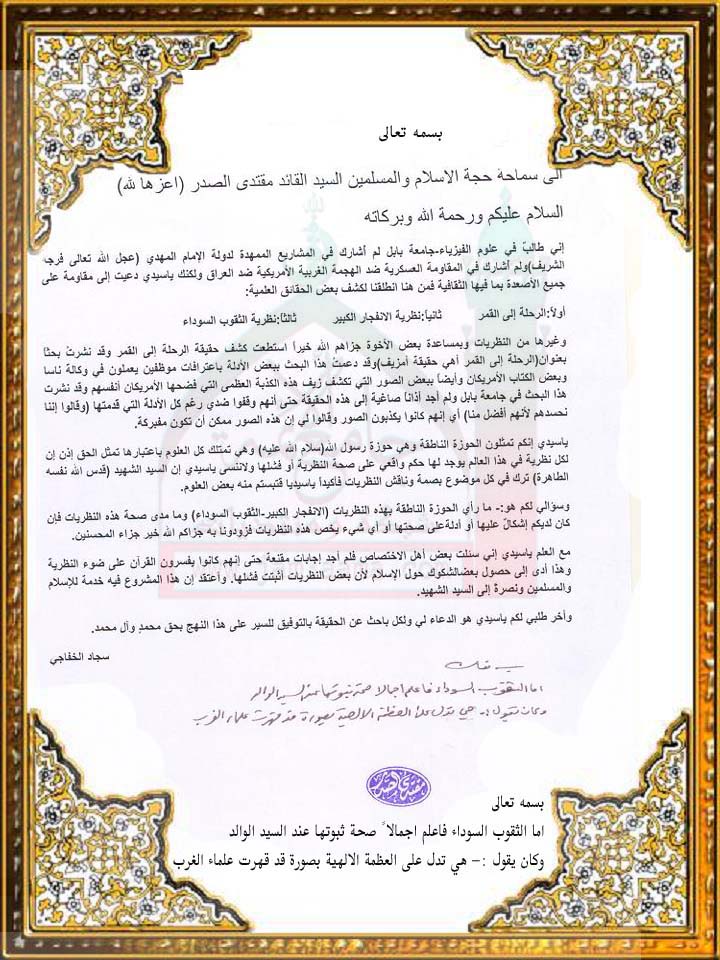 بسمه تعالى
الى سماحة حجة الاسلام والمسلمين السيد القائد مقتدى الصدر (اعزها لله)
السلام عليكم ورحمة الله وبركاته
إني طالبٌ في علوم الفيزياء-جامعة بابل لم أشارك في المشاريع الممهدة لدولة الإمام المهدي (عجل الله تعالى فرجه
الشريف)ولم أشارك في المقاومة العسكرية ضد الهجمة الغربية الأمريكية ضد العراق ولكنك ياسيدي دعيت إلى مقاومة على
جميع الأصعدة بما فيها الثقافية فمن هنا انطلقنا لكشف بعض الحقائق العلمية:
أولاً:الرحلة إلى القمر ثانياً:نظرية الانفجار الكبير ثالثاً:نظرية الثقوب السوداء
وغيرها من النظريات وبمساعدة بعض الأخوة جزاهم الله خيراً استطعت كشف حقيقة الرحلة إلى القمر وقد نشرتُ بحثاً
بعنوان(الرحلة إلى القمر أهي حقيقة أمزيف)وقد دعمت هذا البحث ببعض الأدلة باعترافات موظفين يعملون في وكالة ناسا
وبعض الكتاب الأمريكان وأيضاً ببعض الصور التي تكشف زيف هذه الكذبة العظمى التي فضحها الأمريكان أنفسهم وقد نشرت
هذا البحث في جامعة بابل ولم أجد أذاناً صاغية إلى هذه الحقيقة حتى أنهم وقفوا ضدي رغم كل الأدلة التي قدمتها (وقالوا إننا
نحسدهم لأنهم أفضل منا) أي إنهم كانوا يكذبون الصور وقالوا لي إن هذه الصور ممكن أن تكون مفبركة.
ياسيدي إنكم تمثلون الحوزة الناطقة وهي حوزة رسول الله(سلام الله عليه) وهي تمتلك كل العلوم باعتبارها تمثل الحق إذن إن
لكل نظرية في هذا العالم يوجد لها حكم واقعي على صحة النظرية أو فشلها ولاننسى ياسيدي إن السيد الشهيد (قدس الله نفسه
الطاهرة) ترك في كل موضوع بصمة وناقش النظريات فأكيداً ياسيديا قتبستم منه بعض العلوم.
وسؤالي لكم هو:- ما رأي الحوزة الناطقة بهذه النظريات (الانفجار الكبير-الثقوب السوداء) وما مدى صحة هذه النظريات فإن
كان لديكم إشكالٌ عليها أو أدلةعلى صحتها أو أي شيء يخص هذه النظريات فزودونا به جزاكم الله خير جزاء المحسنين.
مع العلم ياسيدي إني سئلت بعض أهل الاختصاص فلم أجد إجابات مقنعة حتى إنهم كانوا يفسرون القرآن على ضوء النظرية
وهذا أدى إلى حصول بعضالشكوك حول الإسلام لأن بعض النظريات أثبتت فشلها. وأعتقد إن هذا المشروع فيه خدمة للإسلام
والمسلمين ونصرة إلى السيد الشهيد.
وأخر طلبي لكم ياسيدي هو الدعاء لي ولكل باحث عن الحقيقة بالتوفيق للسير على هذا النهج بحق محمدٍ وآل محمد.
سجاد الخفاجي
بسمه تعالى
اما الثقوب السوداء فاعلم اجمالا صحة ثبوتها عند السيد الوالد
وكان يقول :- هي تدل على العظمة الالهية بصورة قد قهرت علماء الغرب
بسمه تعالى
اما الثقوب السوداء فاعلم اجمالاً صحة ثبوتها عند السيد الوالد
وكان يقول :- هي تدل على العظمة الالهية بصورة قد قهرت علماء الغرب